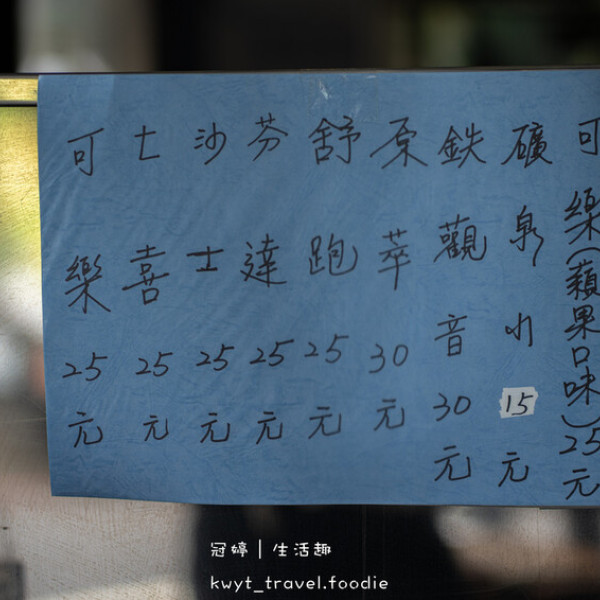 可樂25元
七喜25元
沙士25元
芬達25元
舒跑25元
原萃30元
鉄觀音30元
礦泉水15元
可樂(蘋果口味)25元
冠婷｜生活趣
kwyt_travel.foodie